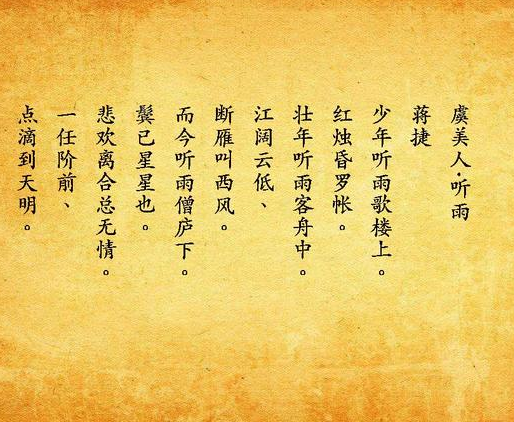 虞美人·听雨
蒋捷
少年听雨歌楼上。
红烛昏罗帐。
壮年听雨客舟中。
江阔云低、
断雁叫西风。
而今听雨僧庐下。
鬓已星星也。
悲欢离合总无情。
一任阶前、
点滴到天明。